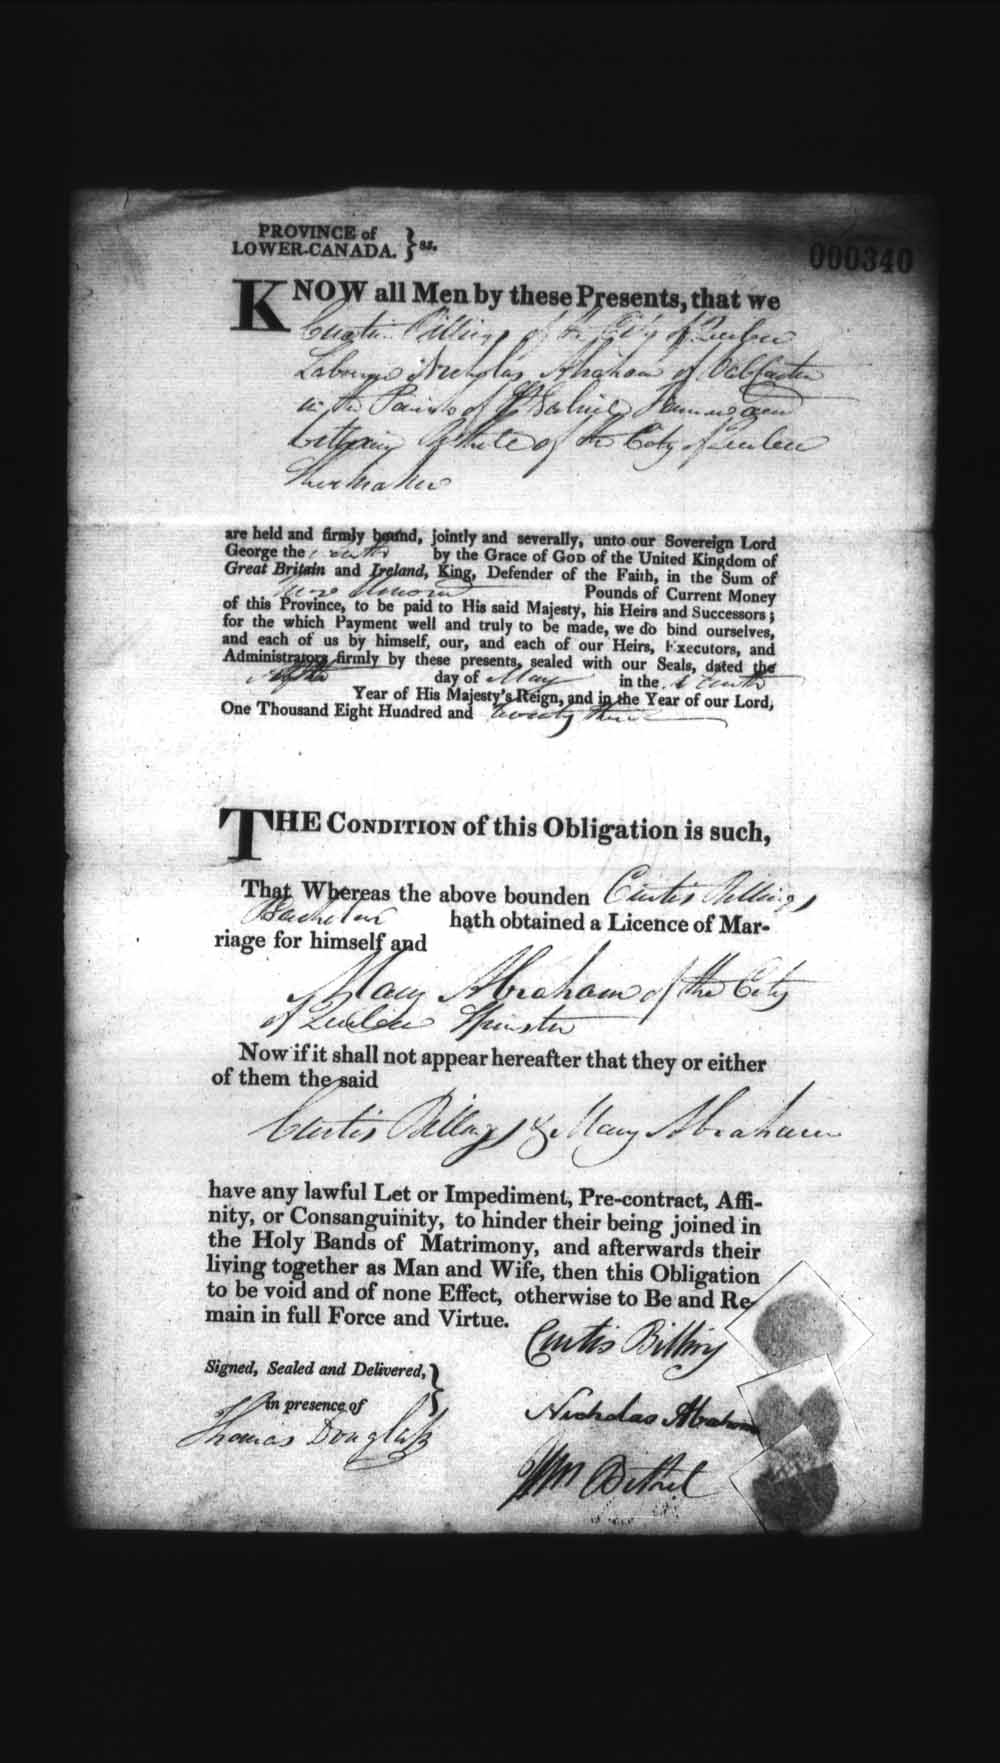 PROVINCE of
LOWER-CANADA. } ss.
000340
KNOW all Men by these Presents, that we
Curtis Billings of the City of Quebec
Labourer Nicholas Abraham of Valcartier
in the Parish of St Gabriel
of the City of Quebec
Shoemaker
are held and firmly bound, jointly and severally, unto our Sovereign Lord
George the fourth by the Grace of GOD of the United Kingdom of
Great Britain and Ireland, King, Defender of the Faith, in the Sum of
Pounds of Current Money
of this Province, to be paid to His said Majesty, his Heirs and Successors;
for the which Payment well and truly to be made, we do bind ourselves,
and each of us by himself, our, and each of our Heirs, Executors, and
Administrators firmly by these presents, sealed with our Seals, dated the
fifth day of May in the fourth
Year of His Majesty's Reign, and in the Year of our Lord,
One Thousand Eight Hundred and twenty three
THE CONDITION of this Obligation is such,
That Whereas the above bounden Curtis Billings
Bachelor hath obtained a Licence of Mar-
riage for himself and
Mary Abraham of the City
of Quebec Spinster
Now if it shall not appear hereafter that they or either
of them the said
Curtis Billings & Mary Abraham
have any lawful Let or Impediment, Pre-contract, Affi-
nity, or Consanguinity, to hinder their being joined in
the Holy Bands of Matrimony, and afterwards their
living together as Man and Wife, then this Obligation
to be void and of none Effect, otherwise to Be and Re-
main in full Force and Virtue.
Curtis Billings
Signed, Sealed and Delivered, }
in presence of
Nicholas Abraham
Thomas Douglass
Wm Bethel